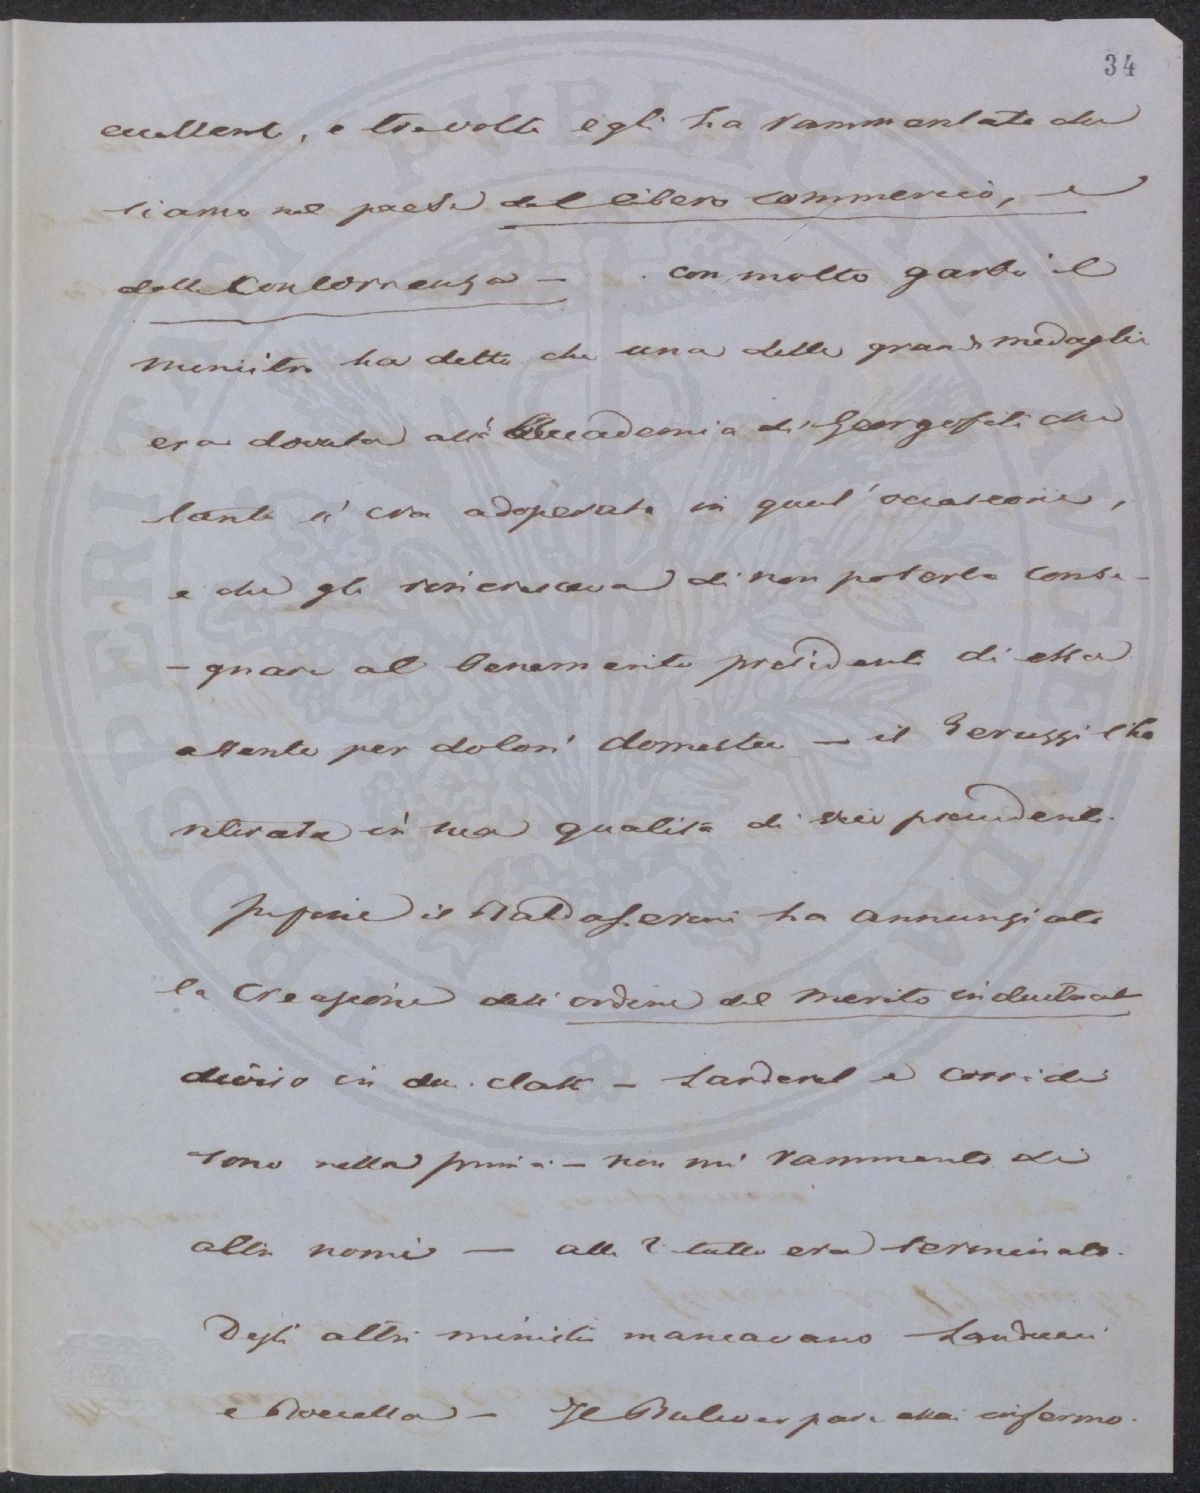 34
eccellente, e tre volte egli ha rammentato che
siamo nel paese del libero commercio, e
della Concorrenza — con molto garbo il
Ministro ha detto che una delle grandi medaglie
era dovuta all'Accademia de' Georgofili che
tanto s'era adoperata in quell'occasione,
e che gli rincresceva di non poterla conse-
-gnare al benemerito presidente di essa
assente per dolori domestici — il Peruzzi l'ha
ritirata in sua qualità di vice presidente.
Infine il Baldasseroni ha annunziato
la Creazione dell'ordine del Merito industriale
diviso in due classi — Larderel e Corridi
sono nella prima — non mi rammento di
altri nomi — alle 2 tutto era terminato.
Degli altri ministri mancavano Landucci
e Boccella — Il Bulwer pare assai infermo.
PROSPERITATI PVBLICAE AVGENDAE